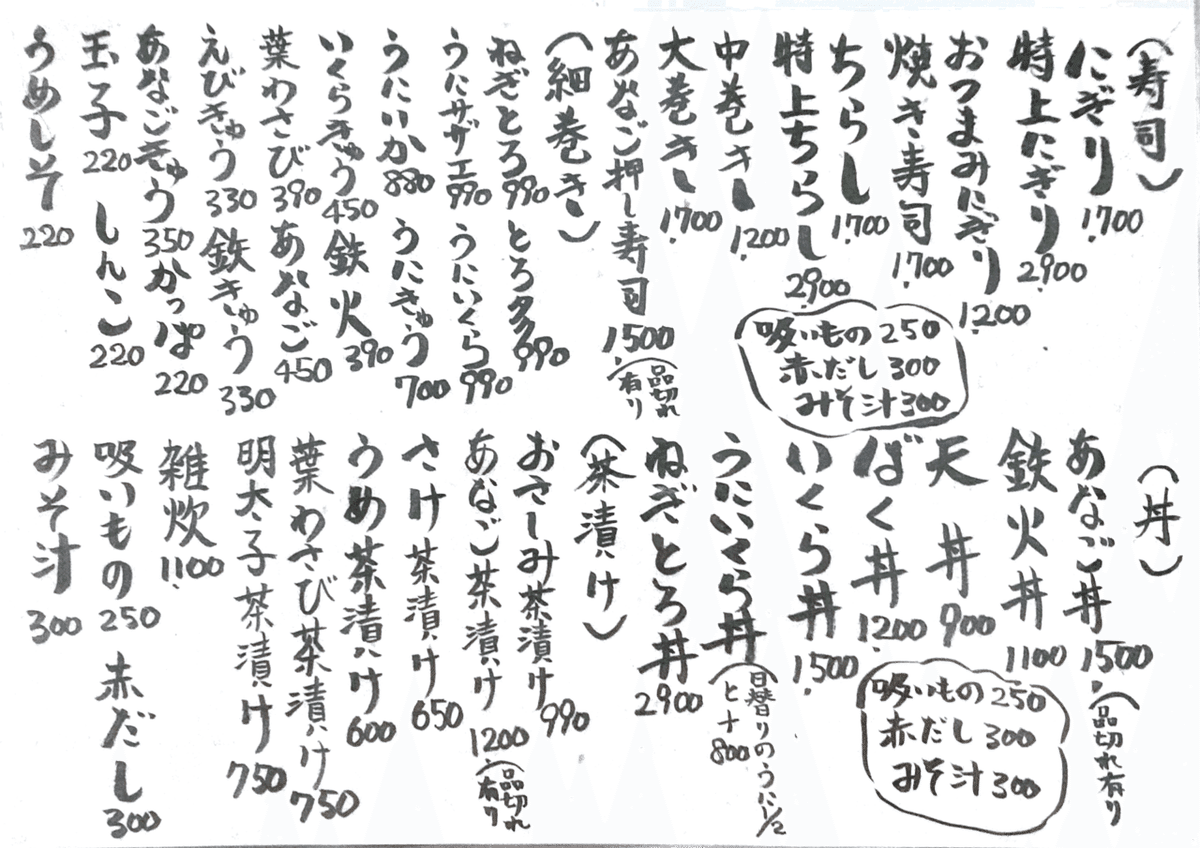 (寿司)
にぎり 1.700
特上にぎり 2.900
おつまみにぎり 1.200
焼き寿司 1.700
ちらし 1.700
特上ちらし 2.900
中巻き 1.200
大巻き 1.700
あなご押し寿司 1.500 (品切れ有り)
吸いもの 250
赤だし 300
みそ汁 300
(細巻き)
ねぎとろ 990 とろタク 990
うにサザエ 990 うにいくら 990
うにいか 880 うにきゅう 700
いくらきゅう 450 鉄火 390
葉わさび 390 あなご 450
えびきゅう 330 鉄きゅう 330
あなごきゅう 350 かっぱ 220
玉子 220 しんこ 220
うめしそ 220
(丼)
あなご丼 1.500 (品切れ有り)
鉄火丼 1100
天丼 900
ばく丼 1.200
いくら丼 1.500
うにいくら丼 (日替りのうに1/2 と+800
ねぎとろ丼 2900
吸いもの 250
赤だし 300
みそ汁 300
(茶漬け)
おさしみ茶漬け 990
あなご茶漬け 1200 (品切れ有り)
さけ茶漬け 650
うめ茶漬け 600
葉わさび茶漬け 750
明太子茶漬け 750
雑炊 1.100
吸いもの 250 赤だし 300
みそ汁 300